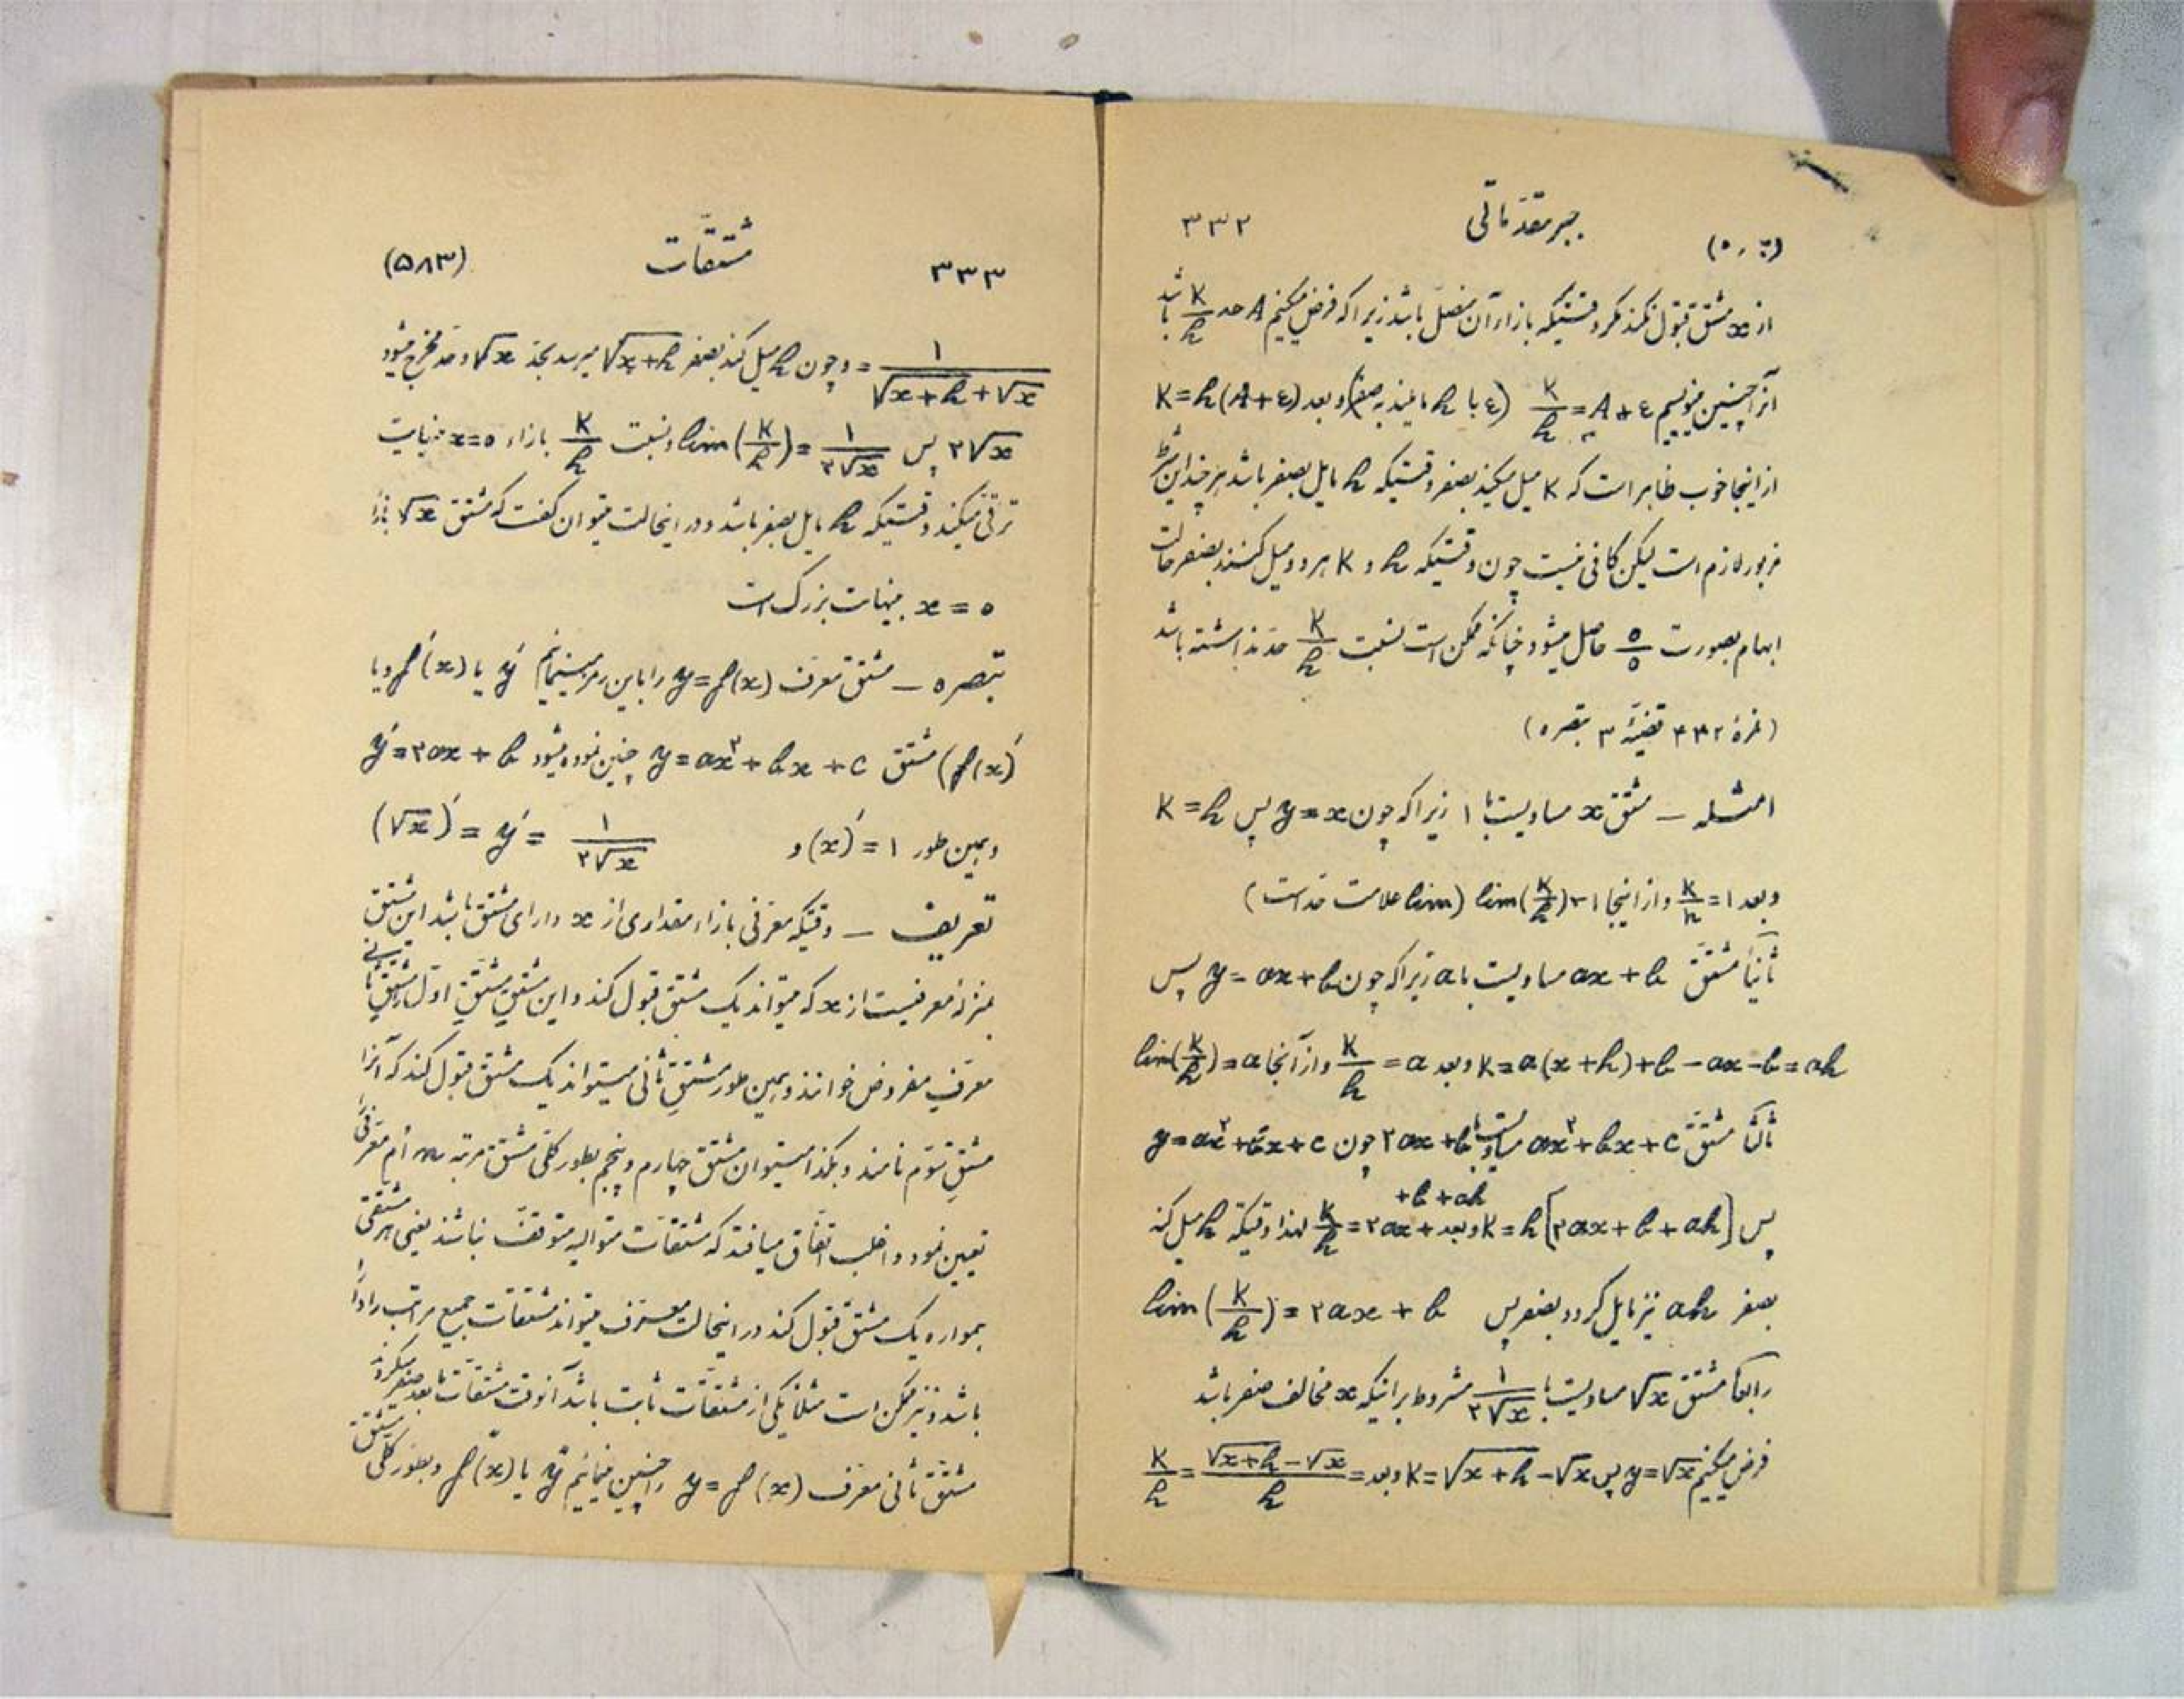 جبر مقدّماتی ۳۳۲
از x مشتق قبول نکند مگر وقتیکه بازاء آن متصل باشد زیرا که فرض میکنیم A حد K/h باشد
آنرا چنین مینویسیم K/h = A+ε (ε با h مایلند به صفر) و بعد K=h(A+ε)
از اینجا خوب ظاهر است که K میل میکند بصفر وقتیکه h مایل بصفر باشد هر چند این شرط
مزبور لازم است لیکن کافی نیست چون وقتیکه h و K هر دو میل کنند بصفر حالت
ابهام بصورت ۰/۰ حاصل میشود چنانکه ممکن است نسبت K/h حد نداشته باشد
(نمرهٔ ۳۳۲ قضیّهٔ ۳ تبصره)
امثله — مشتق x مساویست با ۱ زیرا که چون y=x پس K=h
و بعد K/h=۱ و از اینجا lim(K/h)=۱ (lim علامت حدّ است)
ثانیاً مشتق ax+b مساویست با a زیرا که چون y=ax+b پس
K=a(x+h)+b-ax-b=ah و بعد K/h=a و از آنجا lim(K/h)=a
ثالثاً مشتق ax²+bx+c مساویست با ۲ax+b چون y=ax²+bx+c
پس K=h[۲ax+b+ah] و بعد K/h=۲ax+b+ah لهذا وقتیکه h میل کند
بصفر ah نیز مایل گردد بصفر پس lim(K/h)=۲ax+b
رابعاً مشتق √x مساویست با ۱/۲√x مشروط بر اینکه x مخالف صفر باشد
فرض میکنیم y=√x پس K=√x+h-√x و بعد K/h=(√x+h-√x)/h=
۳۳۳ مشتقّات (۵۸۳)
۱/(√x+h+√x)= و چون h میل کند بصفر √x+h میرسد بحدّ √x و حدّ مخرج میشود
۲√x پس lim(K/h)=۱/۲√x و نسبت K/h بازاء x=۰ بینهایت
ترقی میکند وقتیکه h مایل بصفر باشد و در اینحالت میتوان گفت که مشتق √x بازاء
x=۰ بینهایت بزرگ است
تبصره — مشتق معرف y=f(x) را باین رمز مینمائیم y′ یا f′(x) و یا
(f(x))′ مشتق y=ax²+bx+c چنین نموده میشود y′=۲ax+b
و بهمین طور (x)′=۱ و (√x)′=y′=۱/۲√x
تعریف — وقتیکه معرفی بازاء مقداری از x دارای مشتق باشد این مشتق
بمنزلهٔ معرفیست از x که میتواند یک مشتق قبول کند و این مشتقِ مشتقِ اول را مشتق ثانی
معرفِ مفروض خوانند و بهمین طور مشتقِ ثانی میتواند یک مشتق قبول کند که آنرا
مشتقِ سوّم نامند و هکذا میتوان مشتق چهارم و پنجم بطور کلّی مشتق مرتبه m اُم معرفی
تعیین نمود و اغلب اتفاق میافتد که مشتقات متوالیه متوقف نباشند یعنی هر مشتقی
همواره یک مشتق قبول کند در اینحالت معرف میتواند مشتقات جمیع مراتب را دارا
باشد و نیز ممکن است مثلاً یکی از مشتقات ثابت باشد آنوقت مشتقات مابعد صفر میگردند
مشتق ثانی معرف y=f(x) را چنین مینمائیم y″ یا f″(x) و بطور کلی مشتق